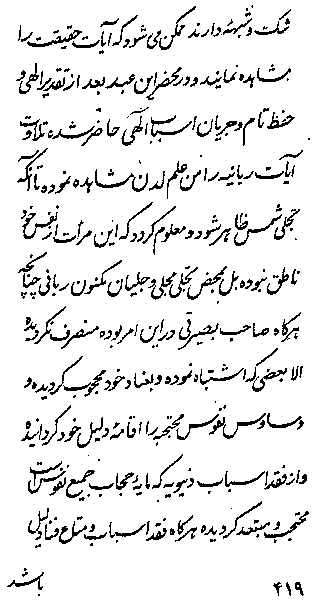 شک و شبهه دارند ممکن می شود که آیات حقیقت را
مشاهده نمایند و در محضر این عبد بعد از تقدیر الهی و
حفظ تام و جریان اسباب الهی حاضر شده تلاوت
آیات ربانیه را من علم لدن مشاهده نموده تا آنکه
تجلی شمس ظاهر شود و معلوم گردد که این مرآت از نفس خود
ناطق نبوده بل بمحض تجلی مجلی و جلیان مکنون ربانی چنانچه
هرگاه صاحب بصیرتی در این امر بوده منصرف نگردیده
الا بعضی که اشتباه نموده و بعناد خود محجوب گردیده و
وساوس نفوس محتجبه را اقامه دلیل خود گردانیده
و از فقد اسباب دنیویه که مایه حجاب جمیع نفوس است
محتجب و مبتعد گردیده هرگاه فقد اسباب و متاع فنا دلیل
باشد
۴۱۹